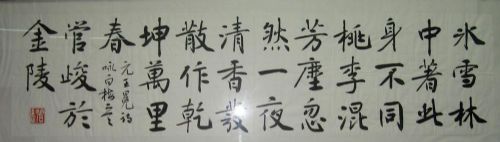 氷雪林
中著此
身不同
桃李混
芳塵忽
然一夜
清香發
散作乾
坤萬里
春
元王冕詩
咏白梅
管峻於
金陵